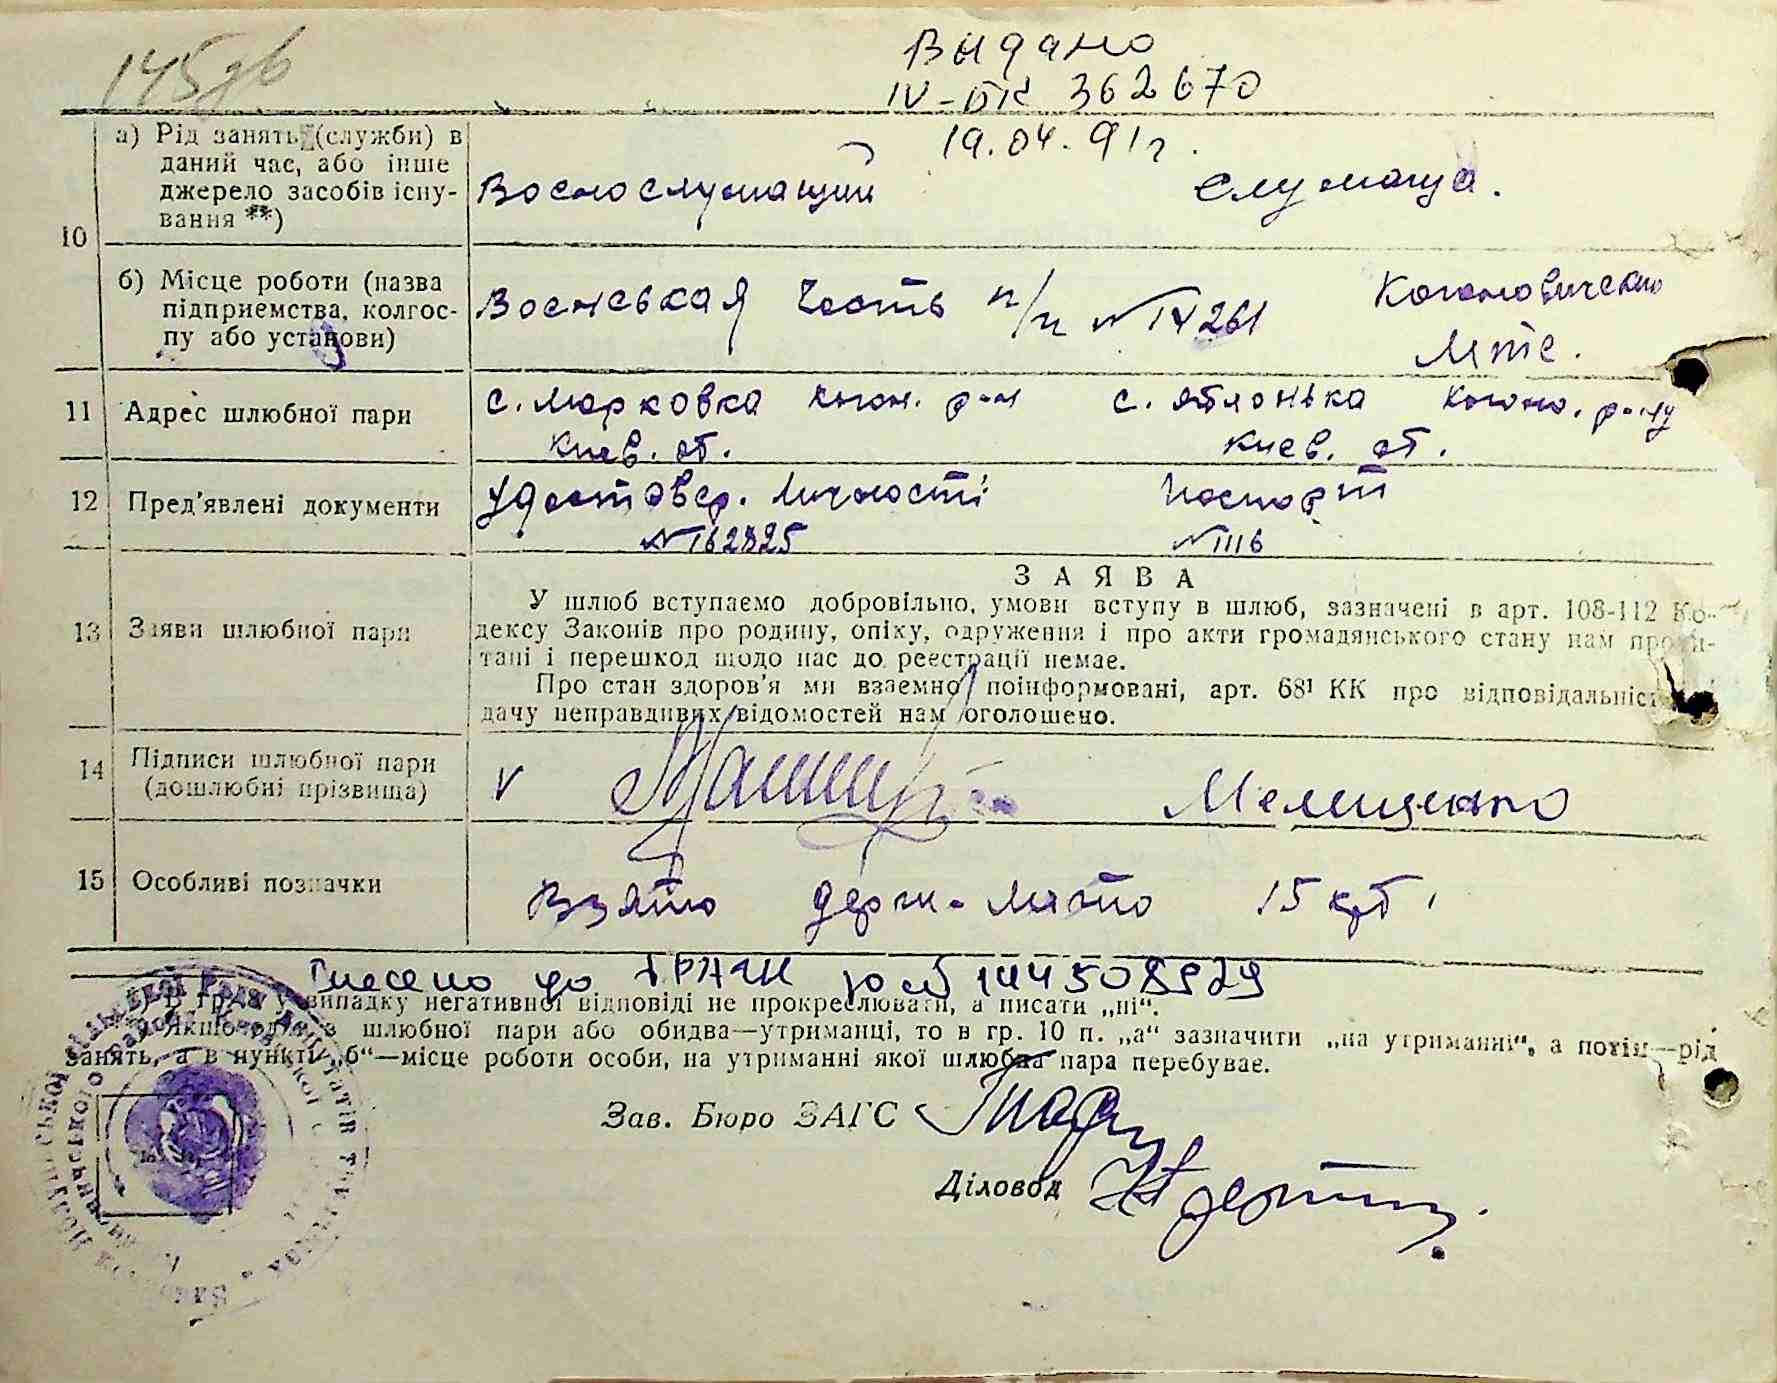 145
Выдано
IV-БК 362670
19.04.91г.
10
а) Рід занять (службн) в
даний час, або інше
джерело засобів існу-
вання **)
Военослужащий
Служащая.
б) Місце роботи (назва
підприємства, колгос-
пу або установи)
Воєнськая часть п/п №14261
Когановическ
МТС.
11
Адрес шлюбної пари
с. Марковка Коган. р-н
Киев. об.
с. Яблонька Коган. р-ну
Киев. об.
12
Пред'явлені документи
Удостовер. личності
№162825
Паспорт
№1116
13
Заяви шлюбної пари
ЗАЯВА
У шлюб вступаємо добровільно, умови вступу в шлюб, зазначені в арт. 108-112 Ко-
дексу Законів про родину, опіку, одруження і про акти громадянського стану нам прочи-
тані і перешкод щодо нас до реєстрації немає.
Про стан здоров'я ми взаємно поінформовані, арт. 68¹ КК про відповідальніст
дачу неправдивих відомостей нам оголошено.
14
Підписи шлюбної пари
(дошлюбні прізвища)
V
Мелищенко
15
Особливі позначки
Взято держ. мито 15 крб.
Внесено до ДРАЦС
*) В графі у випадку негативної відповіді не прокреслювати, а писати „ні“.
**) Якщо один з шлюбної пари або обидва—утриманці, то в гр. 10 п. „а“ зазначити „на утриманні“, а потім—рід
занять, а в пункті „б“—місце роботи особи, на утриманні якої шлюбна пара перебуває.
Зав. Бюро ЗАГС
Діловод